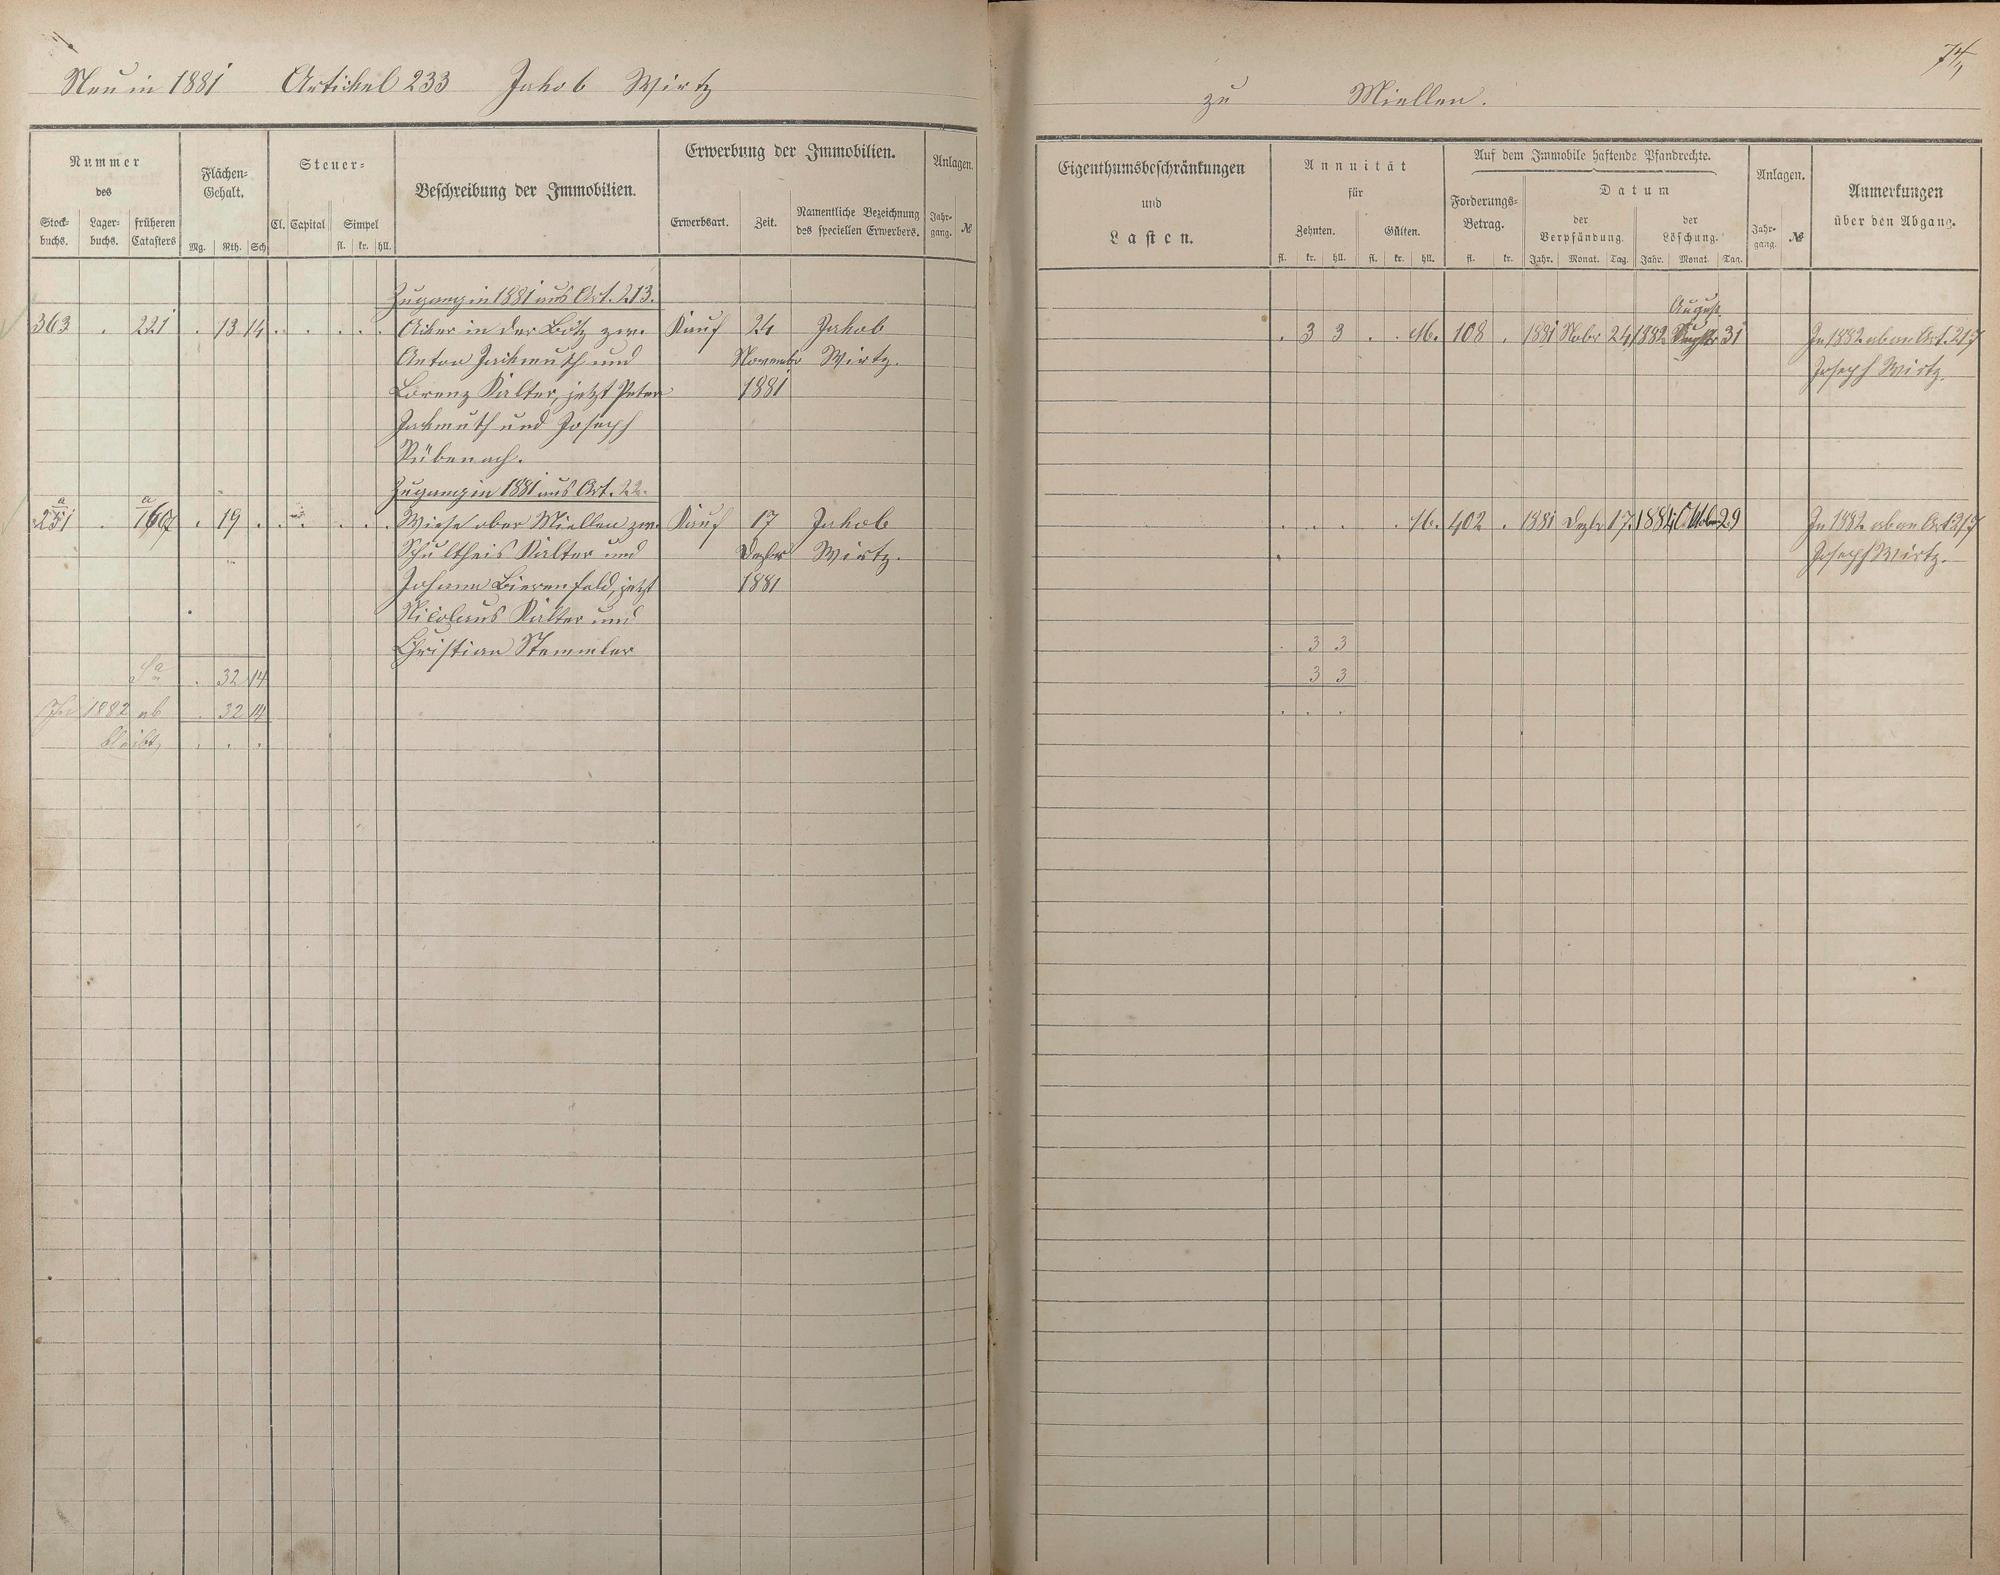 Neu in 1881 Artikel 233 Jakob Wirtz
zu Miellen.
Nummer
des
Stock-
buchs.
Lager-
buchs.
früheren
Catasters
Flächen-
Gehalt.
Mg. Rth. Sch
Steuer-
Cl. Capital Simpel
fl. kr. hll.
Beschreibung der Immobilien.
Erwerbung der Immobilien.
Erwerbsart. Zeit.
Namentliche Bezeichnung
des speciellen Erwerbers.
Anlagen.
Jahr-
gang.
№
Eigenthumsbeschränkungen
und
Lasten.
Annuität
für
Zehnten. Gülten.
fl. kr. hll. fl. kr. hll.
Auf dem Immobile haftende Pfandrechte.
Forderungs-
Betrag.
fl. kr.
Datum
der
Verpfändung.
der
Löschung.
Jahr. Monat. Tag. Jahr. Monat. Tag.
Anlagen.
Jahr-
gang.
№
Anmerkungen
über den Abgang.
Zugang in 1881 aus Art. 213.
363 . 221 . 13 14 . . . . . Acker in der Bötz zw. Kauf 24 Jakob
Anton Jackmuth und Novembr Wirtz.
Lorenz Kalter, jetzt Peter 1881
Jackmuth und Joseph
Rübenach.
Zugang in 1881 aus Art. 22.
a a
251 . 1607 . 19 . . . . . . Wiese ober Miellen zw. Kauf 17 Jakob
Schultheis Kalter und Dezbr Wirtz.
Johann Bierenfeld, jetzt 1881
Nicolaus Kalter und
Christian Stemmler
Sa . 32 14
In 1882 ab . 32 14
bleibt . . .
August
. 3 3 . . M. 108 . 1881 Novbr 24 1882 31 In 1882 ab an Art. 217
Joseph Wirtz.
. . . . . M. 402 . 1881 Dezbr 17. 1884 29 In 1882 ab an Art 217
Joseph Wirtz.
. 3 3
3 3
. . .